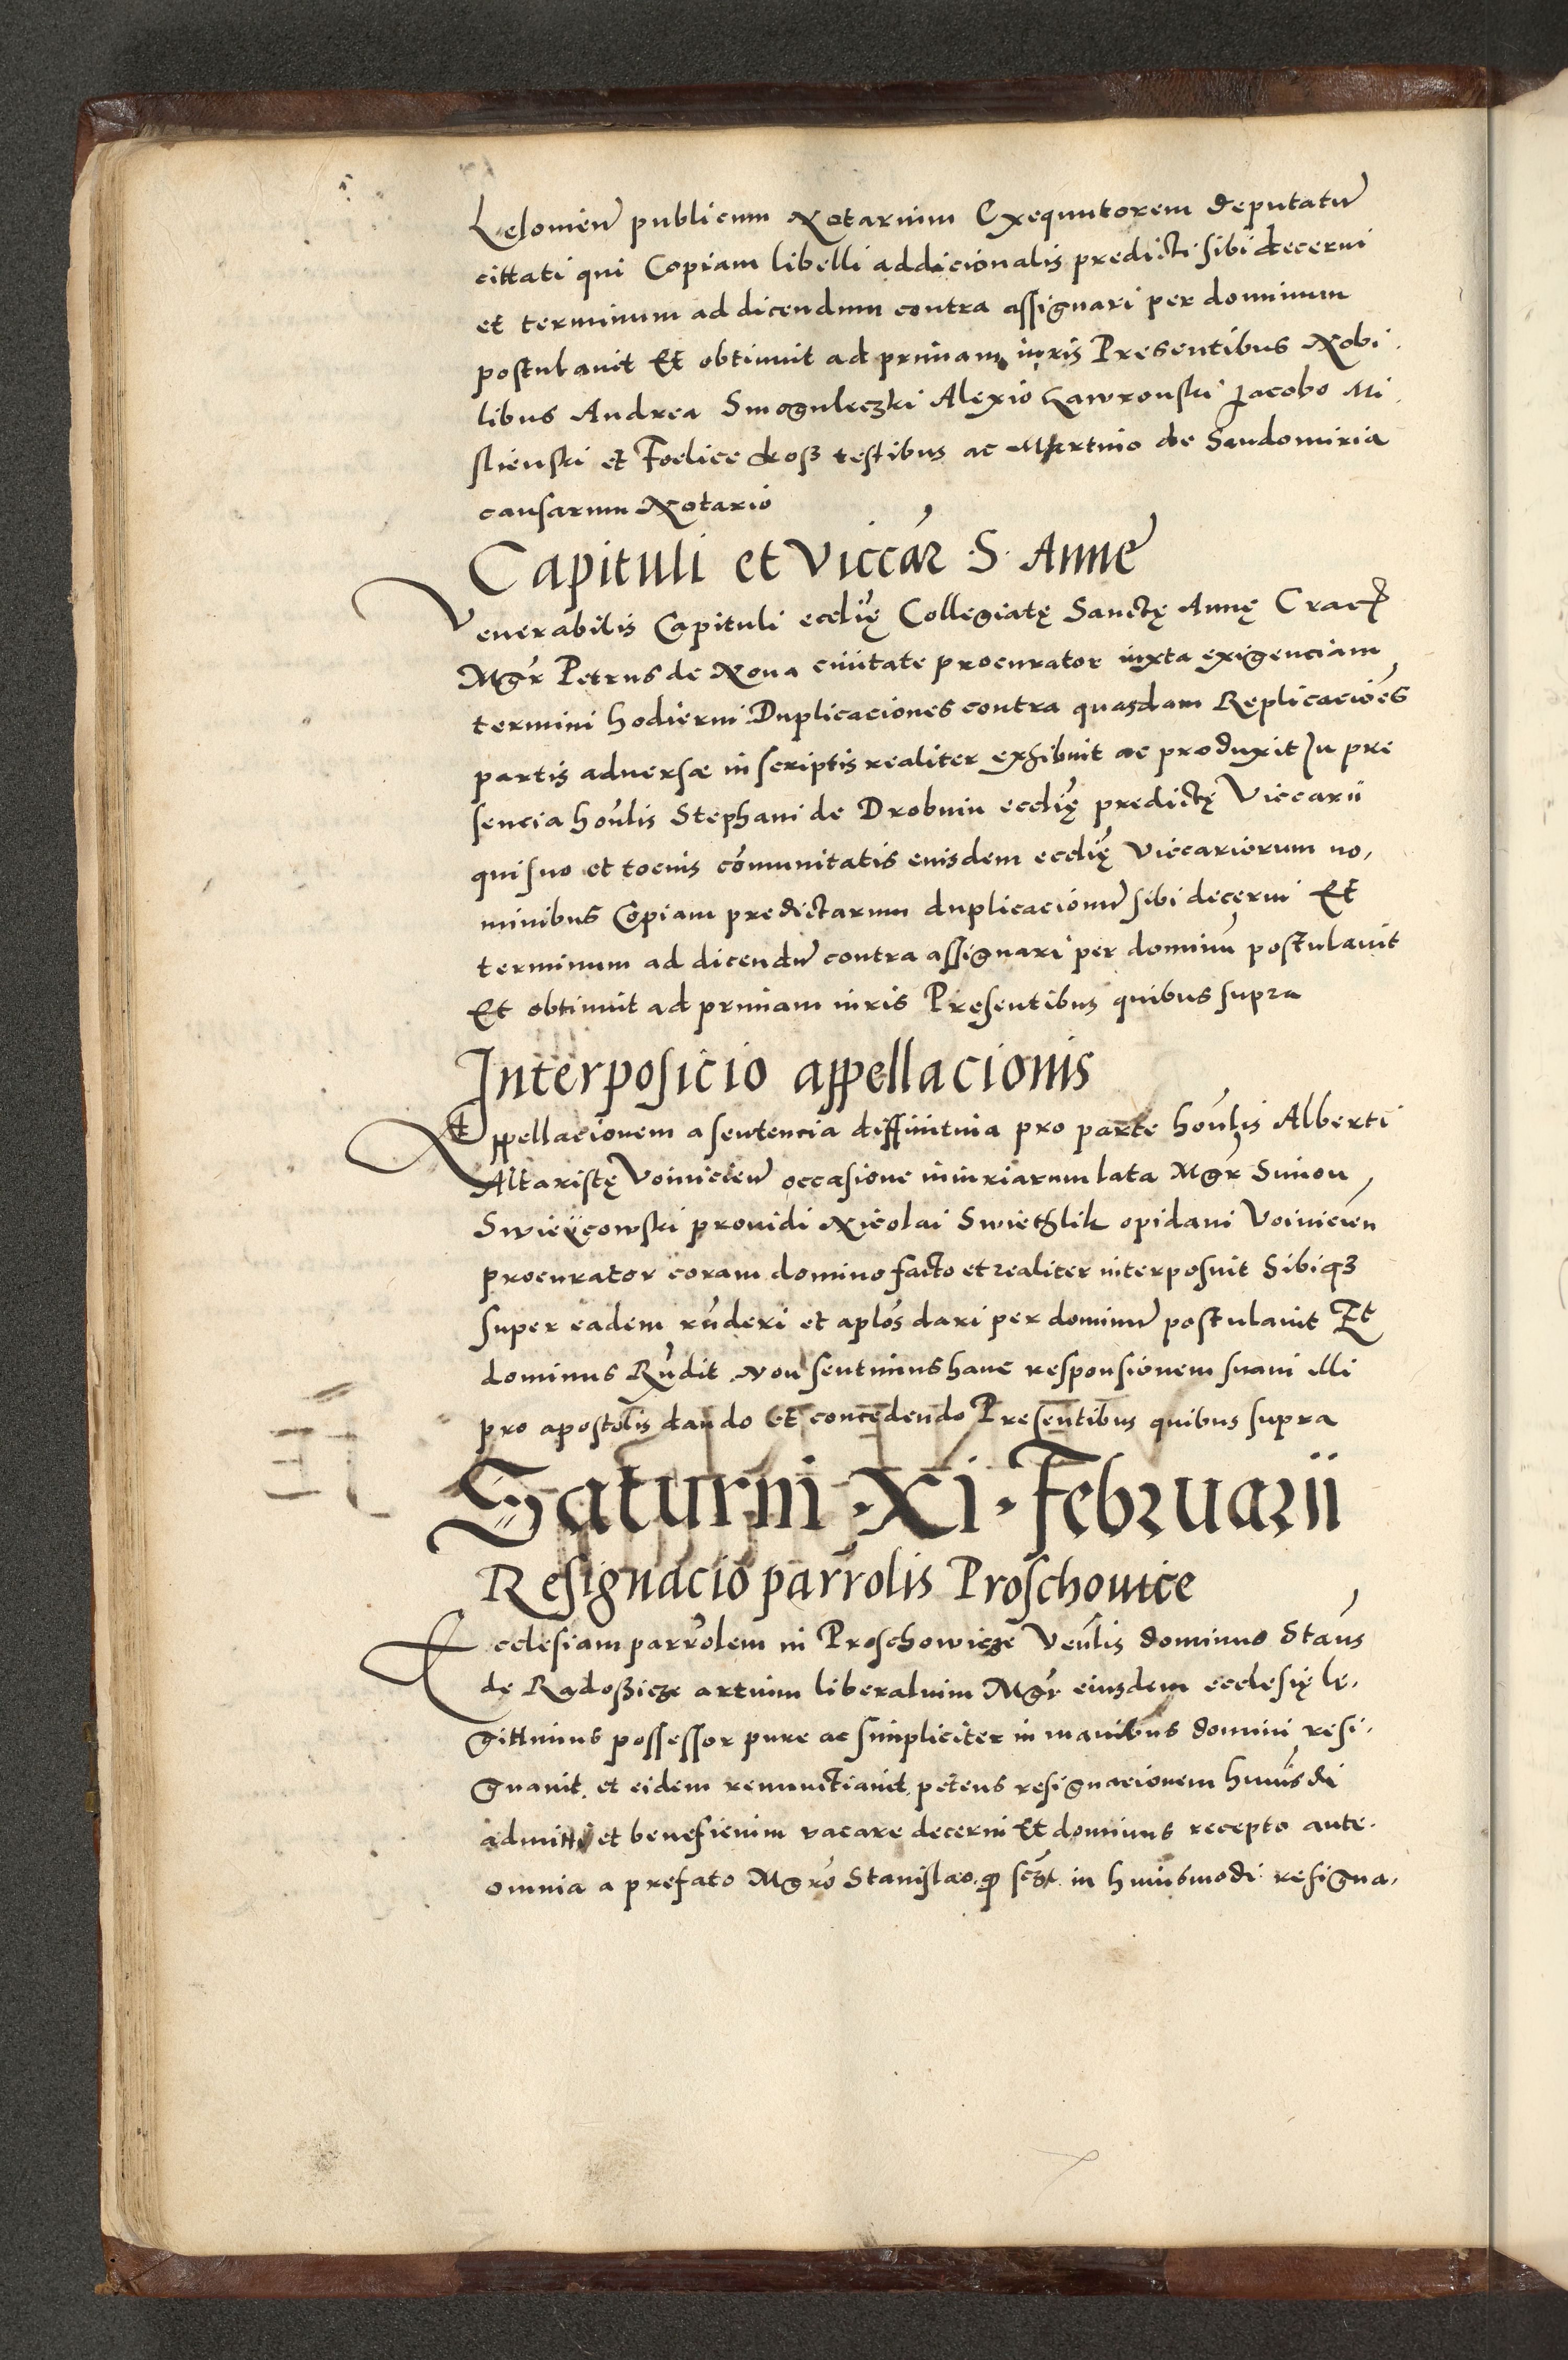 Lelowien publicum Notarium Exequutorem deputatum
cittati qui Copiam libelli addicionalis predicti sibi decerni
et terminum ad dicendum contra assignari per dominum
postulavit Et obtinuit ad primam iuris Presentibus Nobi
libus Andrea Smoguleczki Alexio Gawronski Jacobo Mi
slienski et Foelice drosz testibus ac Martino de Sandomiria
causarum Notario
Capituli et Viccar S. Anne
Venerabilis Capituli ecclię Collegiatę Sanctę Annę Crac
Mgr Petrus de Nova civitate procurator iuxta exigenciam
termini hodierni Duplicaciones contra quasdam Replicaciões
partis adversæ in scriptis realiter exhibuit ac produxit In pre
sencia honlis Stephani de Drobnin ecclię predictę Viccarii
qui suo et tocius cõmunitatis eiusdem ecclię Viccariorum no,
minibus Copiam predictarum duplicacionum sibi decerni Et
terminum ad dicendum contra assignari per dominũ postulavit
Et obtinuit ad primam iuris Presentibus quibus supra
Interposicio appellacionis
Appellacionem a sentencia diffinitiva pro parte honlis Alberti
Altaristę Voinicien occasione iniuriarum lata Mgr Simon
Swieyczowski providi Nicolai Swiethlik opidani Voinicien
procurator coram domino facto et realiter interposuit Sibiqz
super eadem rnderi et aplos dari per dominum postulavit Et
dominus Rndit Non sentimus hanc responsionem suam illi
pro apostolis dando et concedendo Presentibus quibus supra
Saturni · XI · Februarii
Resignacio parrolis Proschovice
Ecclesiam parrolem in Proschowicze Venlis dominus Staus
de Radoszicze artium liberalium Mgr eiusdem ecclesię le,
gittimus possessor pure ac simpliciter in manibus domini resi,
gnavit et eidem renunctiavit petens resignacionem huiusdi
admitti et beneficium vacare decerni Et dominus recepto ante
omnia a prefato Mgro Stanislao in huiusmodi resigna,